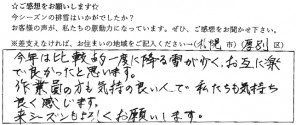 ☆ご感想をお願いします☆
今シーズンの排雪はいかがでしたか？
お客様の声が、私たちの原動力になっています。ぜひ、ご感想をお聞かせ下さい。
※差支えなければ、お住まいの地域をご記入ください…（札幌市）（厚別区）
今年は比較的一度に降る雪が少く、お互に楽
で良かったと思います。
作業員の方も気持の良い人で私たちも気持ち
良く感じます。
来シーズンもよろしくお願いします。